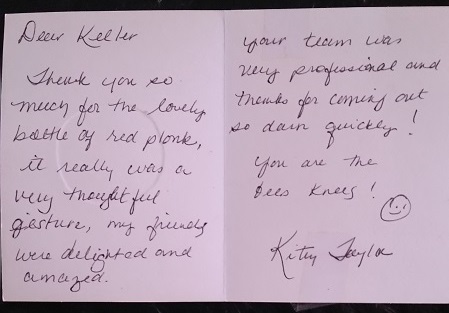 Dear Keller
Thank you so
much for the lovely
bottle of red plonk,
it really was a
very thoughtful
gesture, my friends
were delighted and
amazed.
your team was
very professional and
thanks for coming out
so darn quickly!
you are the
Bees Knees!
Kitty Taylor